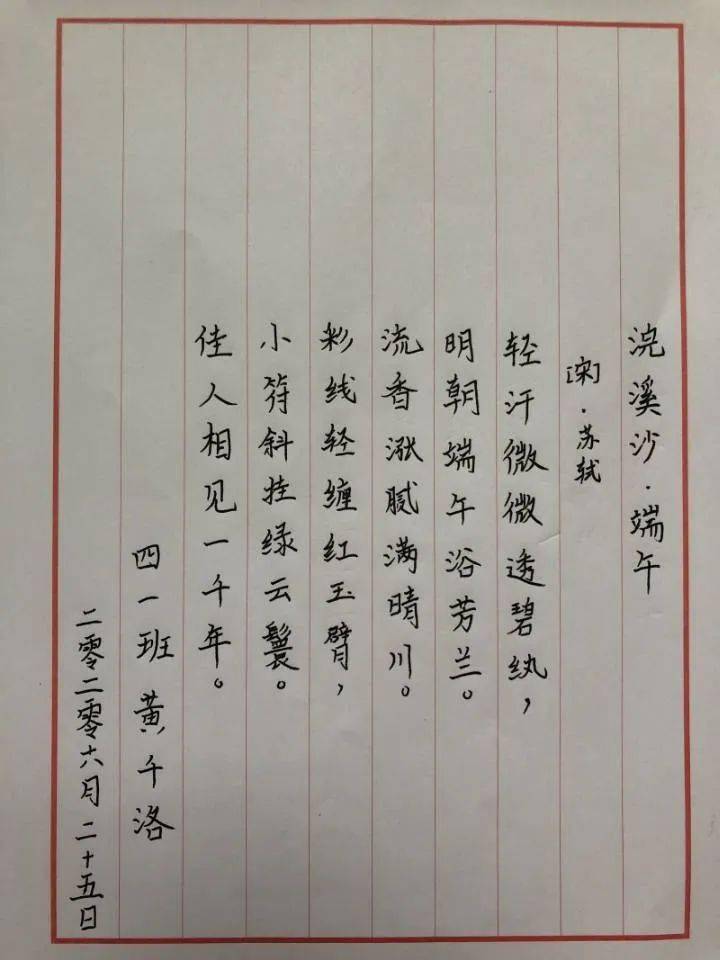 浣溪沙·端午
[宋]·苏轼
轻汗微微透碧纨，
明朝端午浴芳兰。
流香涨腻满晴川。
彩线轻缠红玉臂，
小符斜挂绿云鬟。
佳人相见一千年。
四一班 黄千洛
二零二零六月二十五日